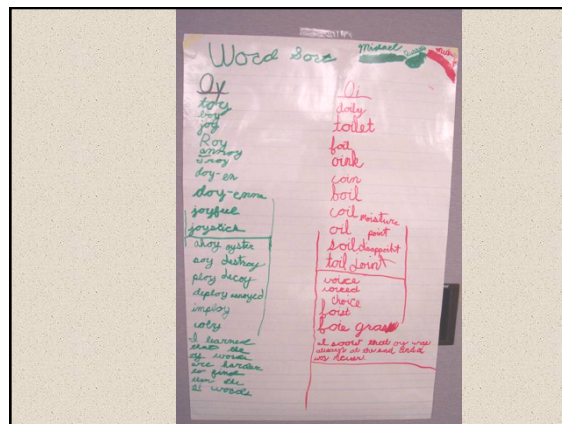 Word Sort
Michael
Oy
toy
boy
joy
Roy
annoy
troy
doy-en
doy-enne
joyful
joystick
ahoy oyster
soy destroy
ploy decoy
deploy annoyed
imploy
coly
I learned
that the
oy words
are harder
to find
then the
oi words
Oi
doily
toilet
foil
oink
coin
boil
coil moisture
oil point
soil disappoint
toil joint
voice
voiced
choice
foist
foie gras